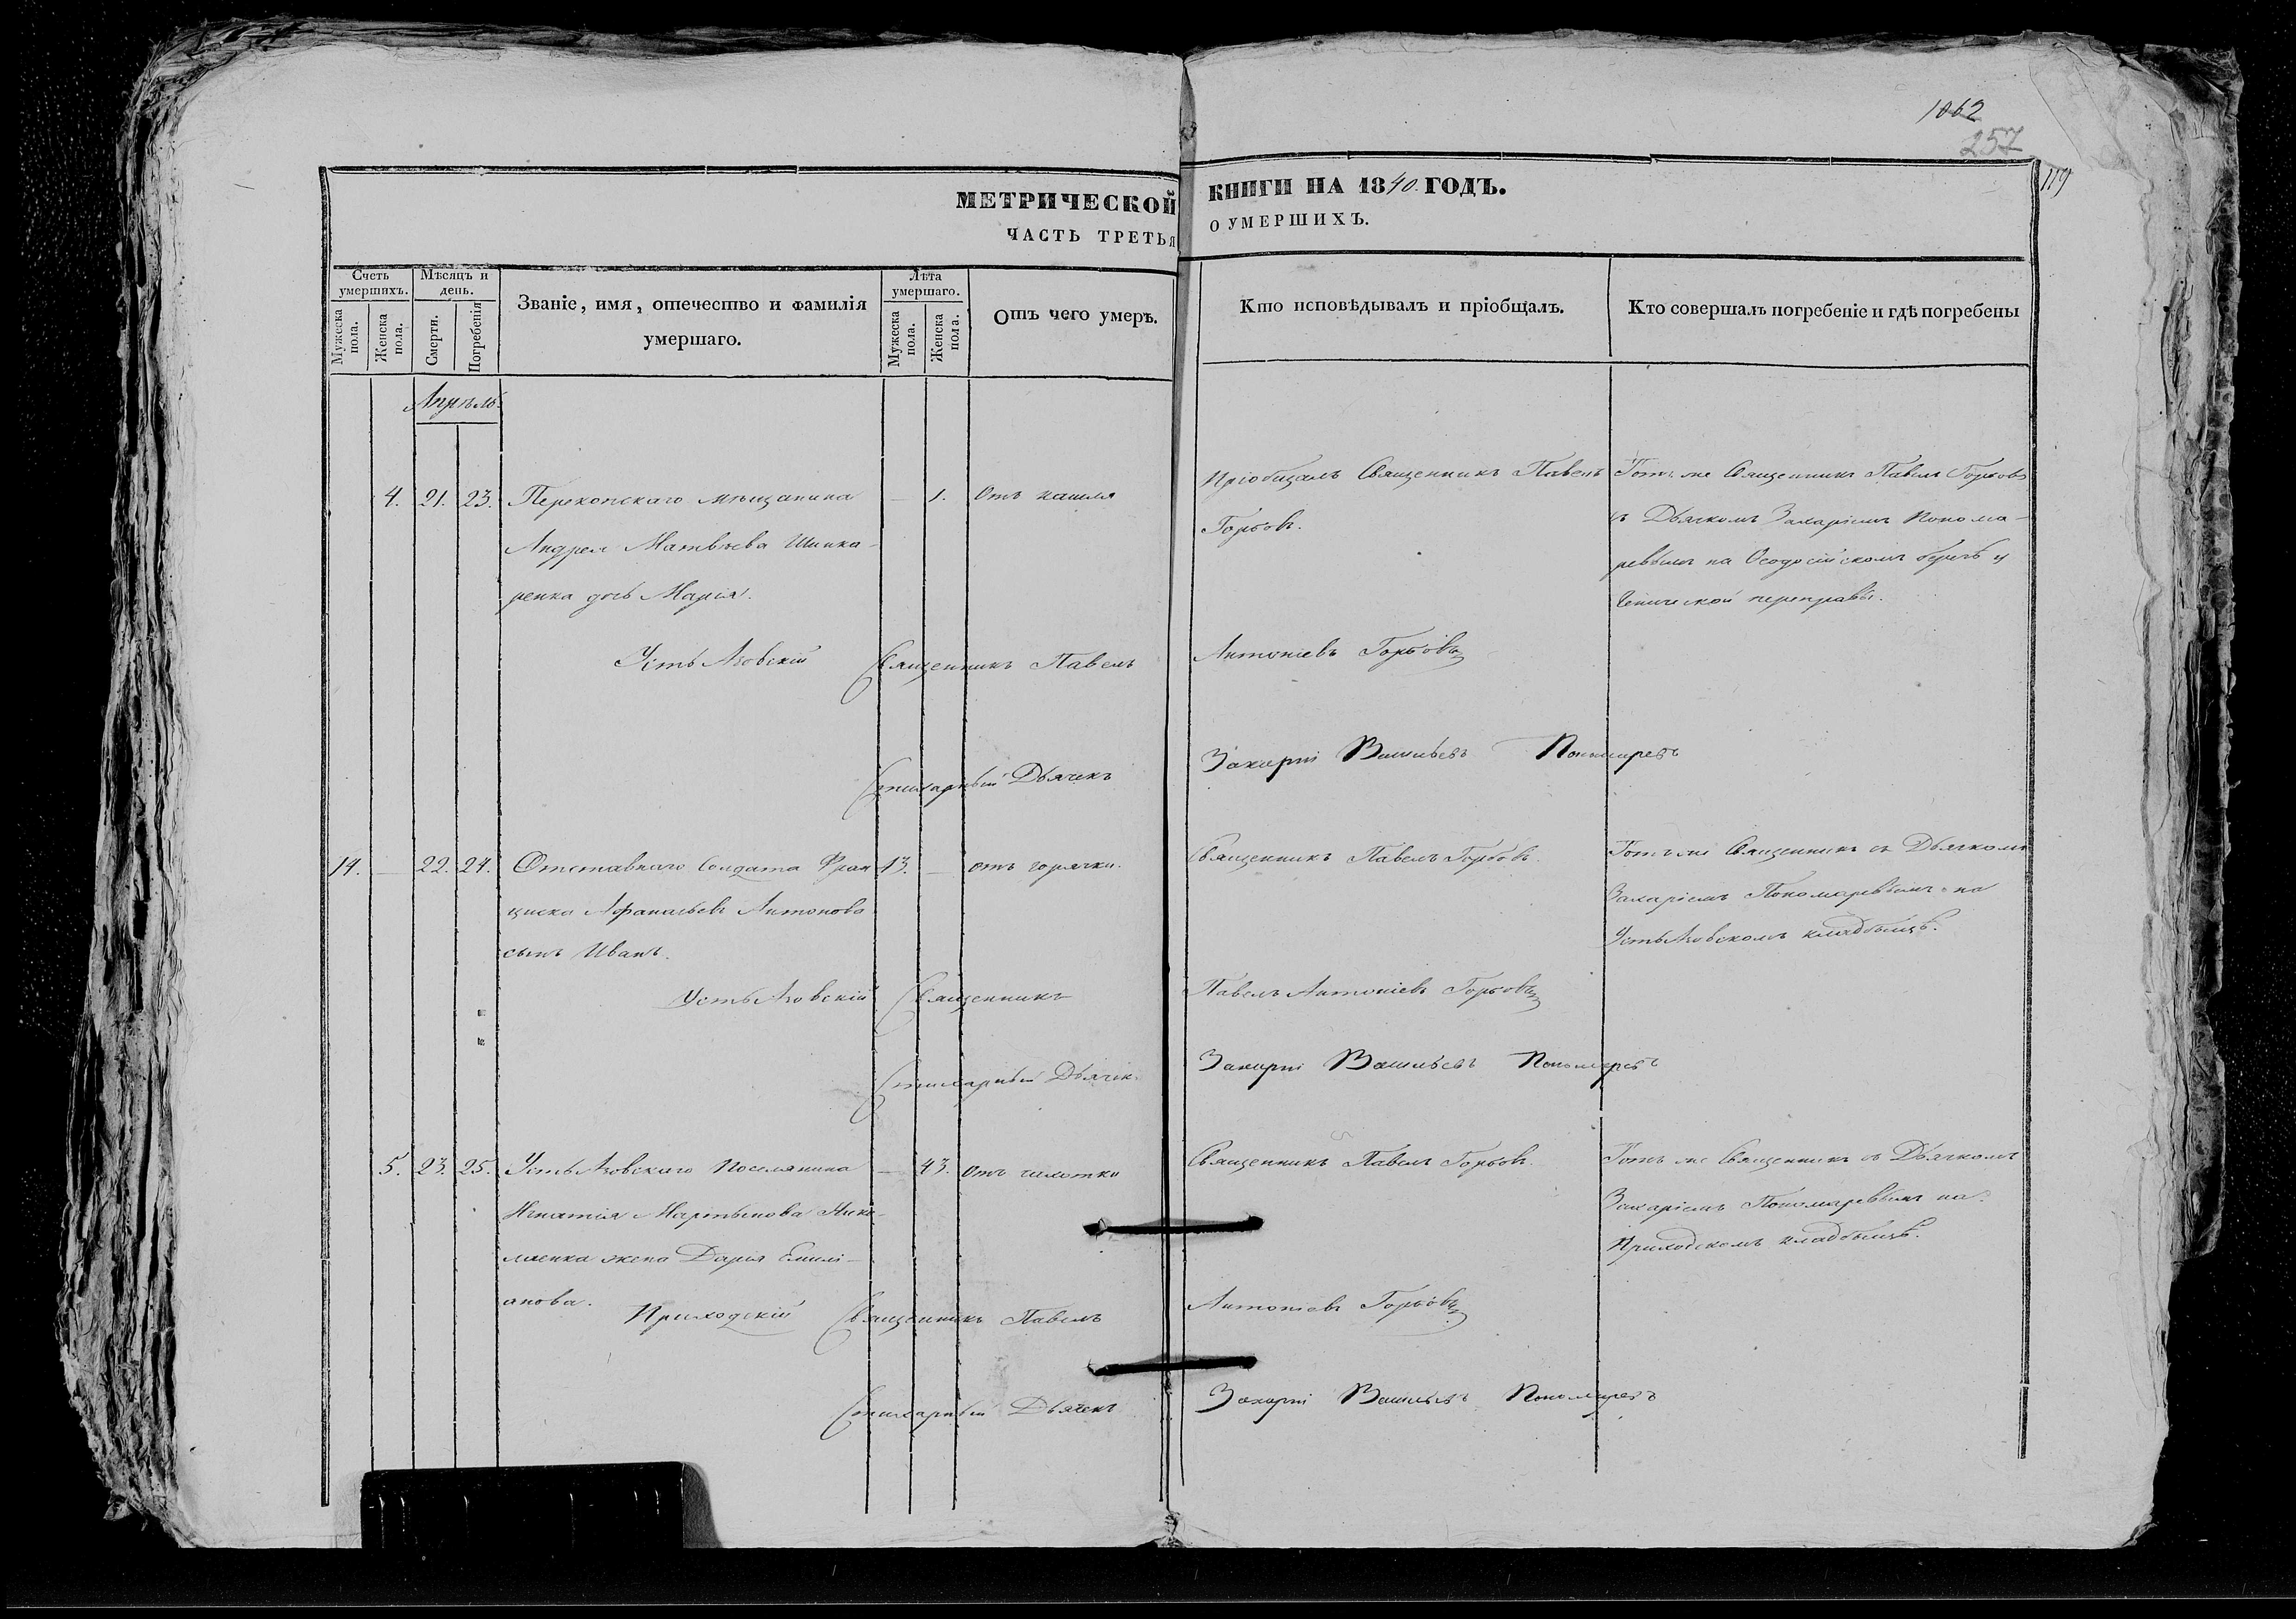 1062
257
119
МЕТРИЧЕСКОЙ КНИГИ НА 1840. ГОДЪ.
ЧАСТЬ ТРЕТЬЯ О УМЕРШИХЪ.
Счетъ умершихъ.
Мужеска пола.
Женска пола.
Мѣсяцъ и день.
Смерти.
Погребенія
Званіе, имя, отечество и фамилія
умершаго.
Лѣта умершаго.
Мужеска пола.
Женска пола.
Отъ чего умеръ.
Кто исповѣдывалъ и пріобщалъ.
Кто совершалъ погребеніе и гдѣ погребены
Апрѣль.
4. 21. 23. Перекопскаго мѣщанина — 1. Отъ кашля
Андрея Матвѣева Шинка-
ренка дочь Марія.
Пріобщалъ Священникъ Павелъ
Горбовъ.
Тотъ же Священникъ Павелъ Горбовъ
съ Дьячкомъ Захаріемъ Понома-
ревымъ на Ѳеодосійскомъ берегѣ у
Генической переправы.
Усть Азовскій Священникъ Павелъ Антоніевъ Горбовъ
Стихарный Дьячекъ Захарій Васильевъ Пономаревъ
14. — 22. 24. Отставнаго Солдата Фран- 13. — отъ горячки.
циска Афанасьевъ Антонова
сынъ Иванъ.
Священникъ Павелъ Горбовъ.
Тотъ же Священникъ съ Дьячкомъ
Захаріемъ Пономаревымъ на
УстьАзовскомъ кладбищѣ.
УстьАзовскій Священникъ Павелъ Антоніевъ Горбовъ
Стихарный Дьячек Захарій Васильевъ Пономаревъ
5. 23. 25. УстьАзовскаго Поселянина — 43. Отъ чихотки
Игнатія Мартынова Нико-
лаенка жена Дарія Емилі-
анова.
Священникъ Павелъ Горбовъ.
Тотъ же Священникъ съ Дьячкомъ
Захаріемъ Пономаревымъ на
Приходскомъ кладбищѣ.
Приходскій Священникъ Павелъ Антоніевъ Горбовъ
Стихарный Дьячекъ Захарій Васильевъ Пономаревъ